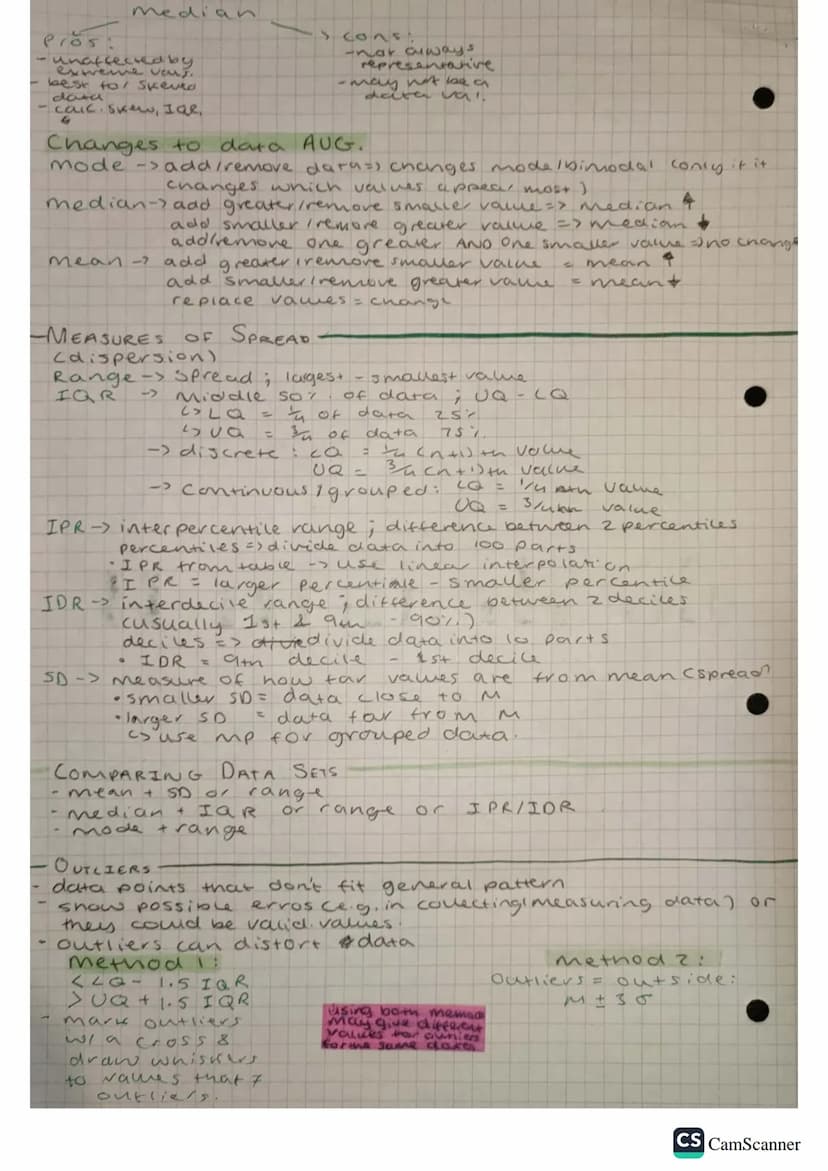 median
Pros:
- unaffected by
extreme vals.
- best for skewed
data
- calc. skew, IQR,
cons:
- not always
representative
- may not be a
data val.
Changes to data AVG.
mode -> add/remove data => changes mode/bimodal (only if it
changes which values appear most)
median -> add greater/remove smaller value => median ↑
add smaller/remove greater value => median ↓
add/remove one greater AND one smaller value => no change
mean -> add greater/remove smaller value = mean ↑
add smaller/remove greater value = mean ↓
replace values = change
MEASURES OF SPREAD
(dispersion)
Range -> spread ; largest - smallest value
IQR -> Middle 50% of data ; UQ - LQ
↳ LQ = 1/4 of data 25%
↳ UQ = 3/4 of data 75%
-> discrete : LQ = 1/4 (n+1)th value
UQ = 3/4 (n+1)th value
-> Continuous/grouped: LQ = 1/4 nth value
UQ = 3/4 nth value
IPR -> interpercentile range ; difference between 2 percentiles
percentiles => divide data into 100 parts
• IPR from table -> use linear interpolation
• IPR = larger percentile - smaller percentile
IDR -> interdecile range ; difference between 2 deciles
(usually 1st & 9th - 90%)
deciles => divide data into 10 parts
• IDR = 9th decile - 1st decile
SD -> measure of how far values are from mean (spread)
• smaller SD = data close to M
• larger SD = data far from M
↳ use MP for grouped data.
COMPARING DATA SETS
- mean + SD or range
- median + IQR or range or IPR/IDR
- mode + range
OUTLIERS
- data points that don't fit general pattern
- show possible erros (e.g. in collecting/measuring data) or
they could be valid values.
- outliers can distort data
Method 1:
< LQ - 1.5 IQR
> UQ + 1.5 IQR
- mark outliers
w/ a cross &
draw whiskers
to values that ≠
outliers.
using both methods
may give different
values for outliers
for the same data
Method 2:
Outliers = outside:
μ ± 3σ
CS CamScanner